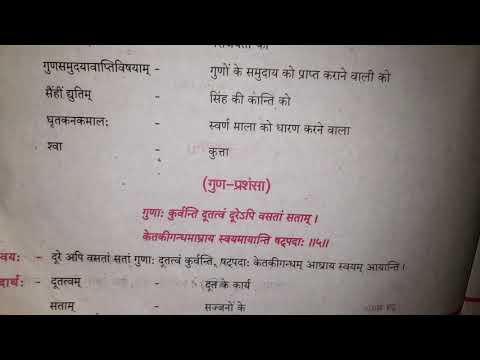 गुणसमुदयावाप्तिविषयाम् - गुणों के समुदाय को प्राप्त कराने वाली को
सैंहीं द्युतिम् - सिंह की कान्ति को
धृतकनकमालः - स्वर्ण माला को धारण करने वाला
श्वा - कुत्ता
(गुण-प्रशंसा)
गुणाः कुर्वन्ति दूतत्वं दूरेऽपि वसतां सताम् ।
केतकीगन्धमाघ्राय स्वयमायान्ति षट्पदाः ॥५॥
वयः- दूरे अपि वसतां सतां गुणाः दूतत्वं कुर्वन्ति, षट्पदाः केतकीगन्धम् आघ्राय स्वयम् आयान्ति ।
दार्थः- दूतत्वम् - दूत के कार्य
सताम् - सज्जनों के